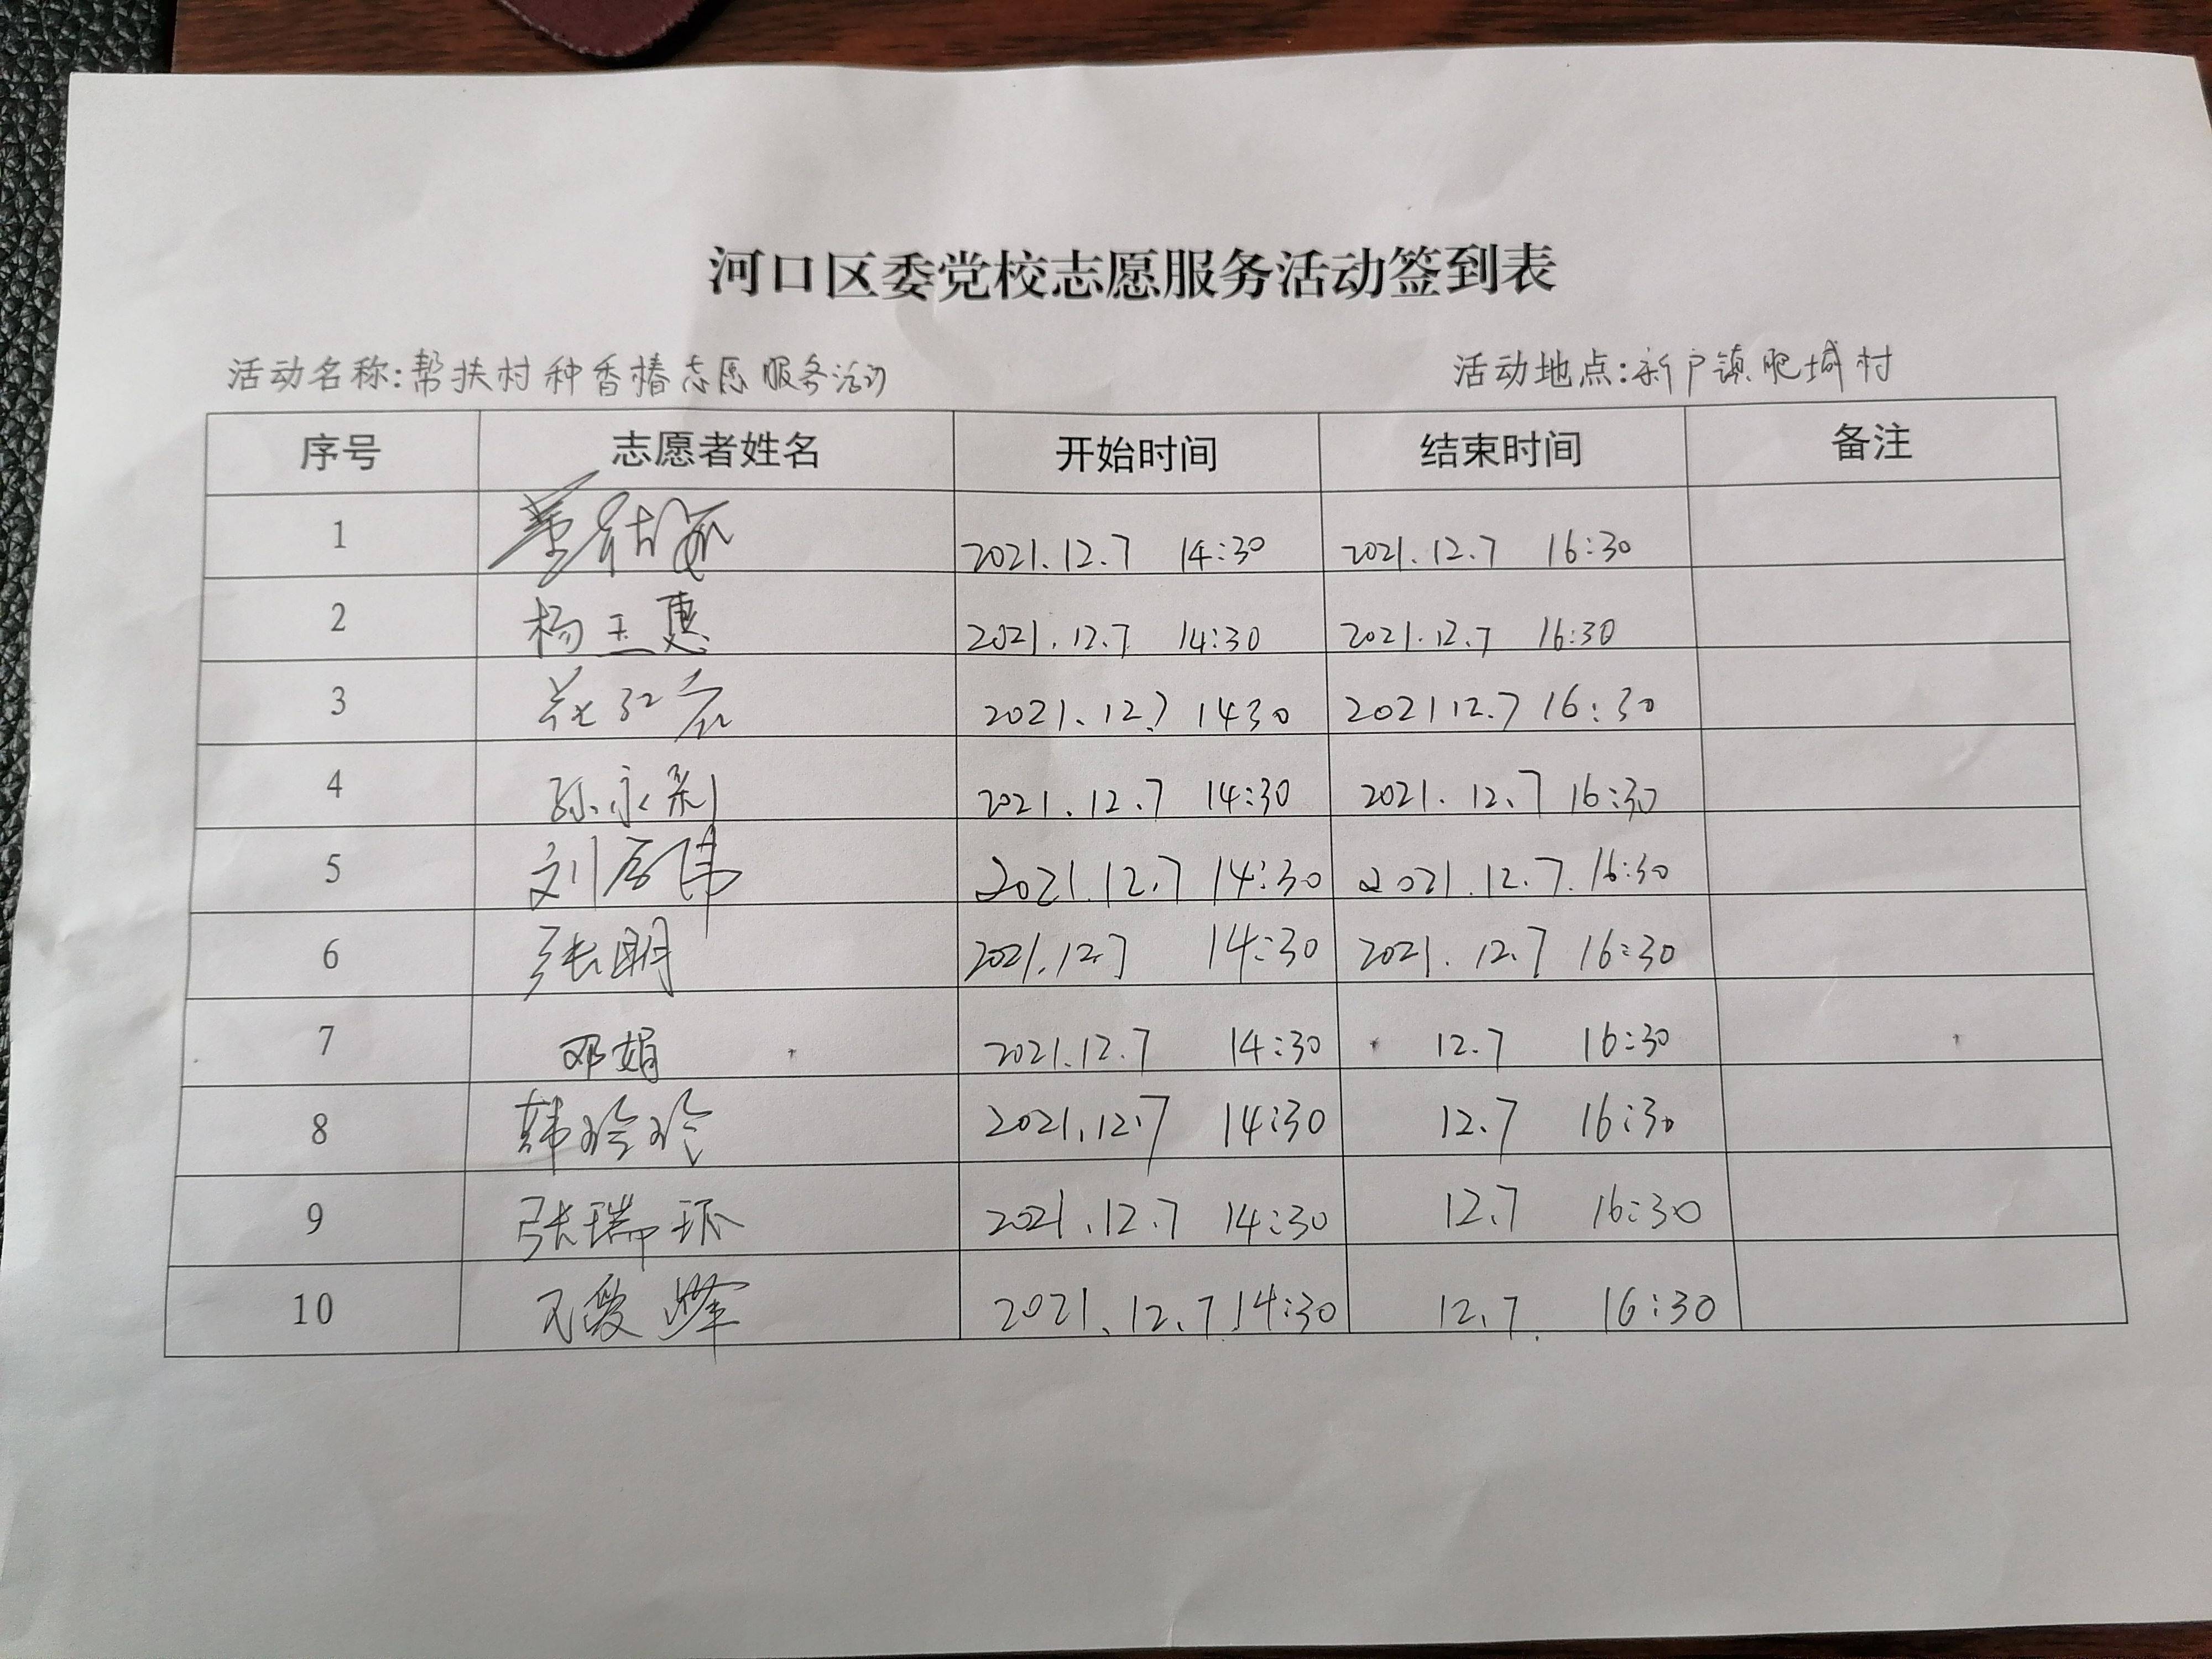 河口区委党校志愿服务活动签到表
活动名称:帮扶村种香椿志愿服务活动 活动地点:新户镇肥城村
序号 志愿者姓名 开始时间 结束时间 备注
1 2021.12.7 14:30 2021.12.7 16:30
2 杨玉惠 2021.12.7 14:30 2021.12.7 16:30
3 2021.12.7 1430 2021 12.7 16:30
4 孙永利 2021.12.7 14:30 2021.12.7 16:30
5 刘 伟 2021.12.7 14:30 2021.12.7. 16:30
6 张明 2021.12.7 14:30 2021.12.7 16:30
7 邓娟 2021.12.7 14:30 12.7 16:30
8 韩玲玲 2021.12.7 14:30 12.7 16:30
9 张瑞环 2021.12.7 14:30 12.7 16:30
10 2021.12.7 14:30 12.7. 16:30